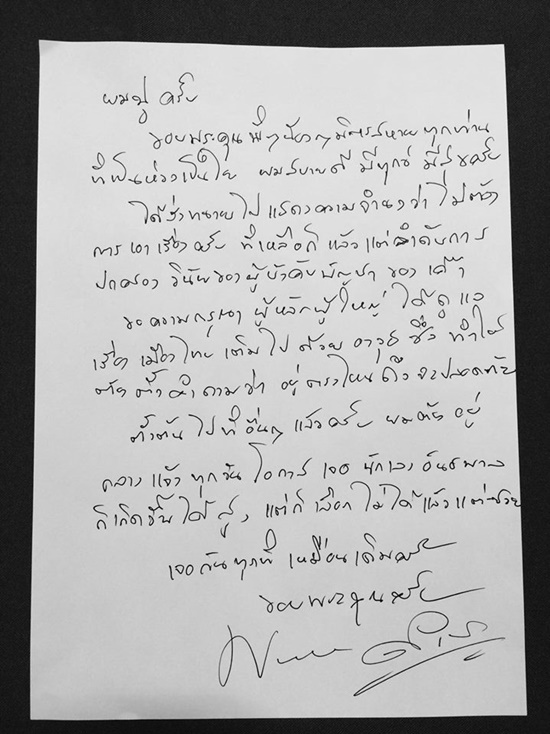 ผมปู ครับ
ขอบพระคุณ พี่ๆน้องๆ มิตรสหาย ทุกท่าน
ที่เป็นห่วงเป็นใย ผมสบายดี มีทุกข์ มีสุขครับ
ได้สั่งทนาย ไป แสดงความจำนงว่า ไม่ต้อง
การ เอา เรื่อง ครับ ที่เหลือก็ แล้วแต่ ลำดับการ
ปกครอง วินัยของผู้บังคับบัญชา ของ เค้า
ขอความกรุณา ผู้หลักผู้ใหญ่ ได้ดูแล
เรื่อง เมืองไทย เต็มไป ด้วย อาวุธ ซึ่ง ทำให้
ต้อง ตั้งคำถามว่า อยู่ตรงไหน ถึง จะปลอดภัย
ไปที่อื่นๆ แล้วครับ ผมต้อง อยู่
กลาง แจ้ง ทุกวัน โอกาส เจอ นักเลง อันธพาล
ก็เกิดขึ้น ได้ สูง แต่ก็ เลือก ไม่ได้ แล้วแต่
เจอกันทุกที่ เหมือนเดิมครับ
ขอบพระคุณครับ